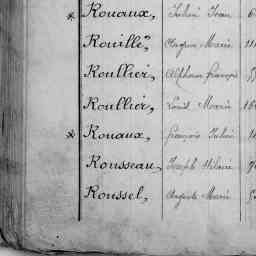 * Rouaux, Julien Jean 6
Rouillé, Marie 11
Roullier, Alphonse François
Roullier, Louis Marie 16
* Rouaux, François Julien
Rousseau, Joseph Hilaire
Roussel, Auguste Marie